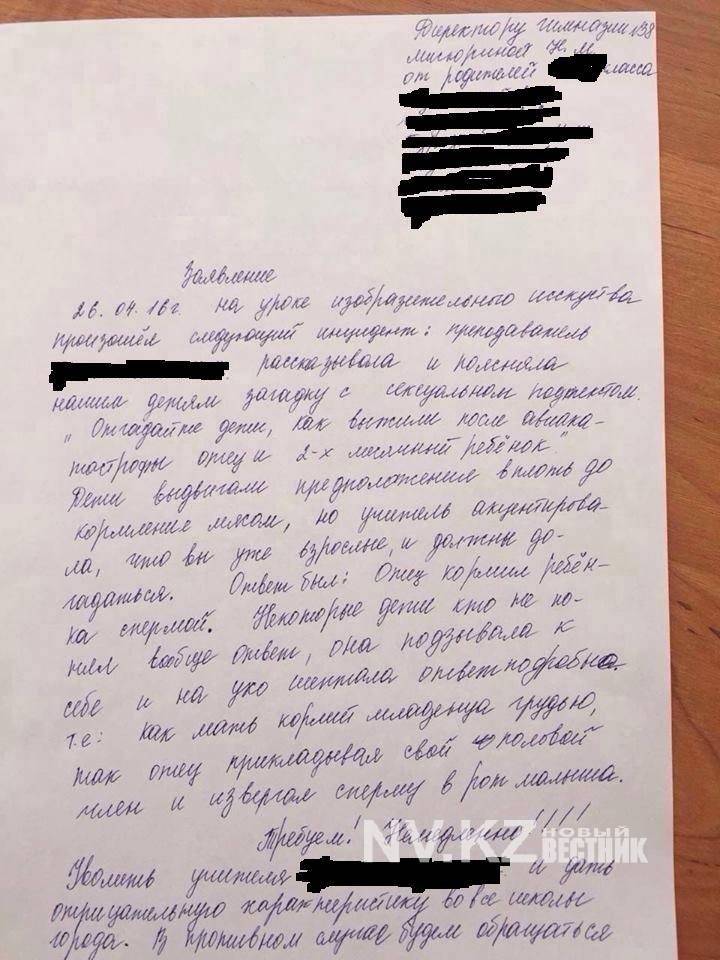 Директору гимназии №38
Мигюриной Н.М.
от родителей класса
Заявление
26.04.16г. на уроке изобразительного исскуства
произошёл следующий инцидент: преподаватель
рассказывала и поясняла
нашим детям загадку с сексуальном подтектом.
"Отгадайте дети, как выжили после авиака-
тастрофы отец и 2-х месячный ребёнок"
Дети выдвигали предположение вплоть до
кормление мясом, но учитель акцентирова-
ла, что вы уже взрослые, и должны до-
гадаться. Ответ был: Отец кормил ребён-
ка спермой. Некоторые дети кто не по-
нял вообще ответ, она подзывала к
себе и на ухо шептала ответ подробно.
т.е: как мать кормит младенца грудью,
так отец прикладывая свой половой
член и извергая сперму в рот малыша.
Требуем! Немедленно!!!!!
NV.KZ НОВЫЙ ВЕСТНИК
Уволить учителя и дать
отрицательную характеристику во все школы
города. В противном случае будем обращаться